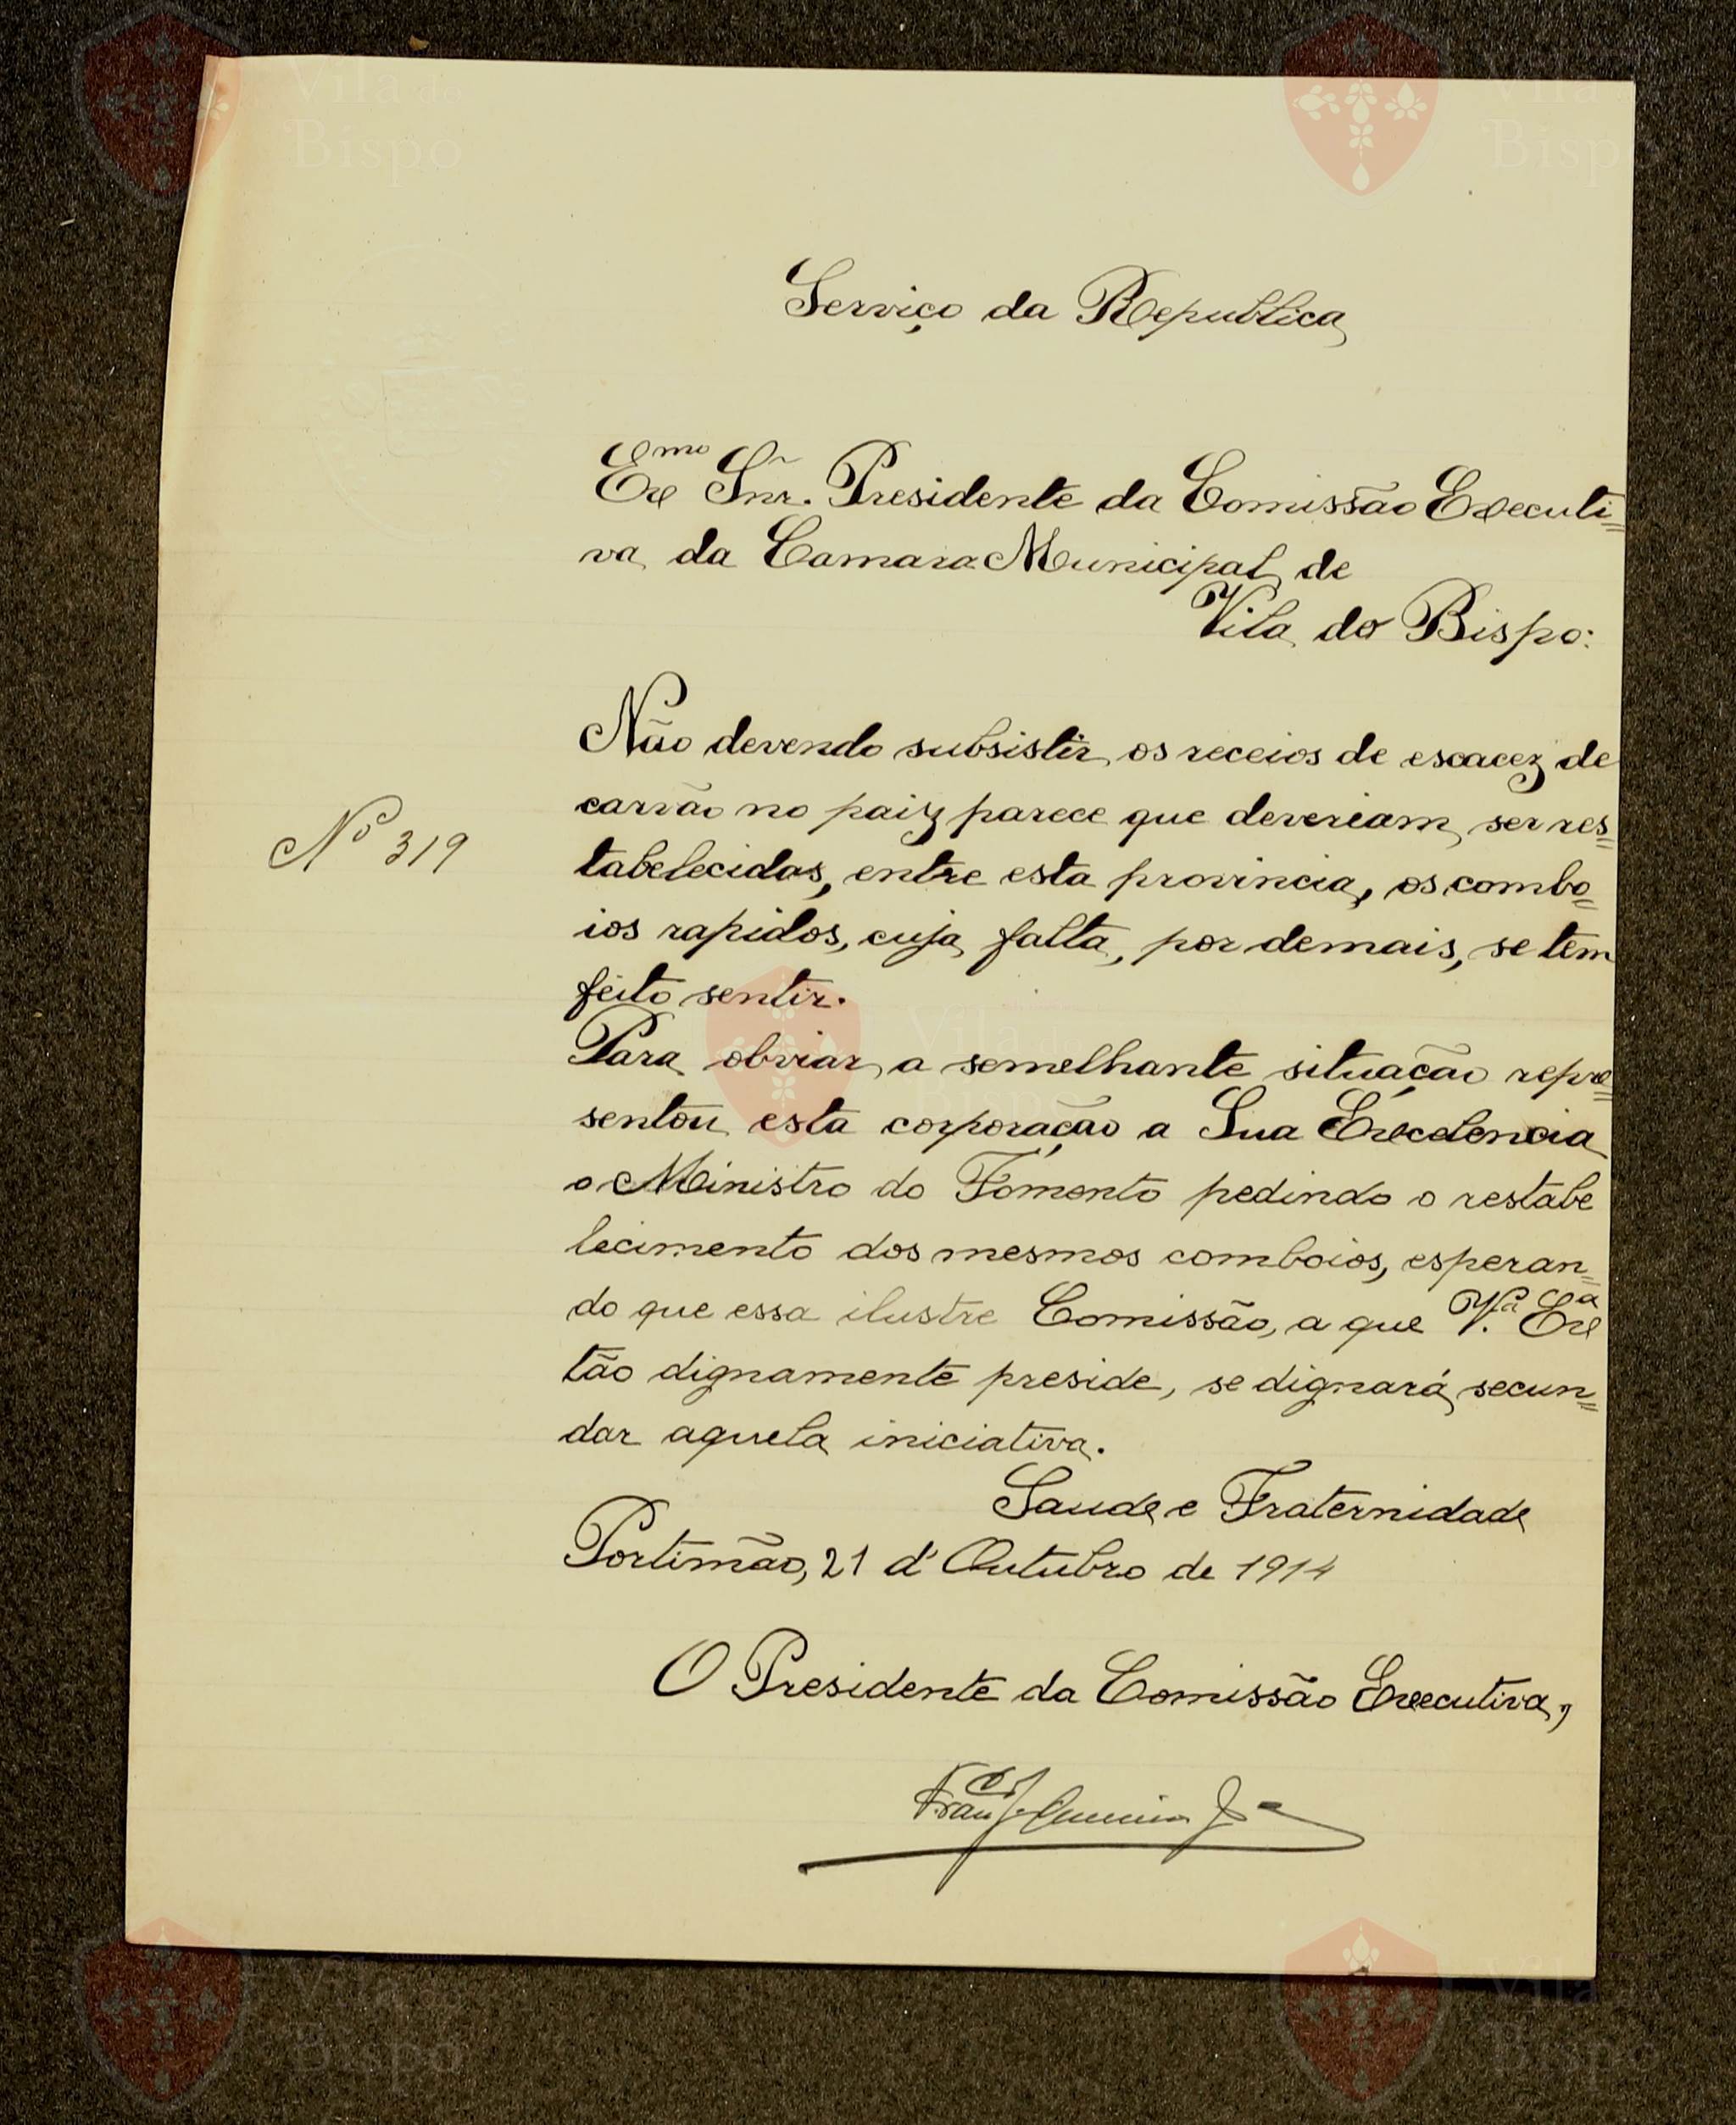 Serviço da Republica
Exmo Snr. Presidente da Comissão Executi=
va da Camara Municipal de
Vila do Bispo:
Não devendo subsistir os receios de escacez de
Nº 319
carvão no paiz parece que deveriam ser res=
tabelecidos, entre esta provincia, os combo=
ios rapidos, cuja falta, por demais, se tem
feito sentir.
Para obviar a semelhante situação repre=
sentou esta corporação a Sua Excelencia
o Ministro do Fomento pedindo o restabe
lecimento dos mesmos comboios, esperan=
do que essa ilustre Comissão, a que V.ª Exª
tão dignamente preside, se dignará secun=
dar aquela iniciativa.
Saude e Fraternidade
Portimão, 21 d'Outubro de 1914
O Presidente da Comissão Executiva,
Vila do
Bispo
Vila
Bispo
Vila
Bispo
Vila
Bispo
Vila
Bispo